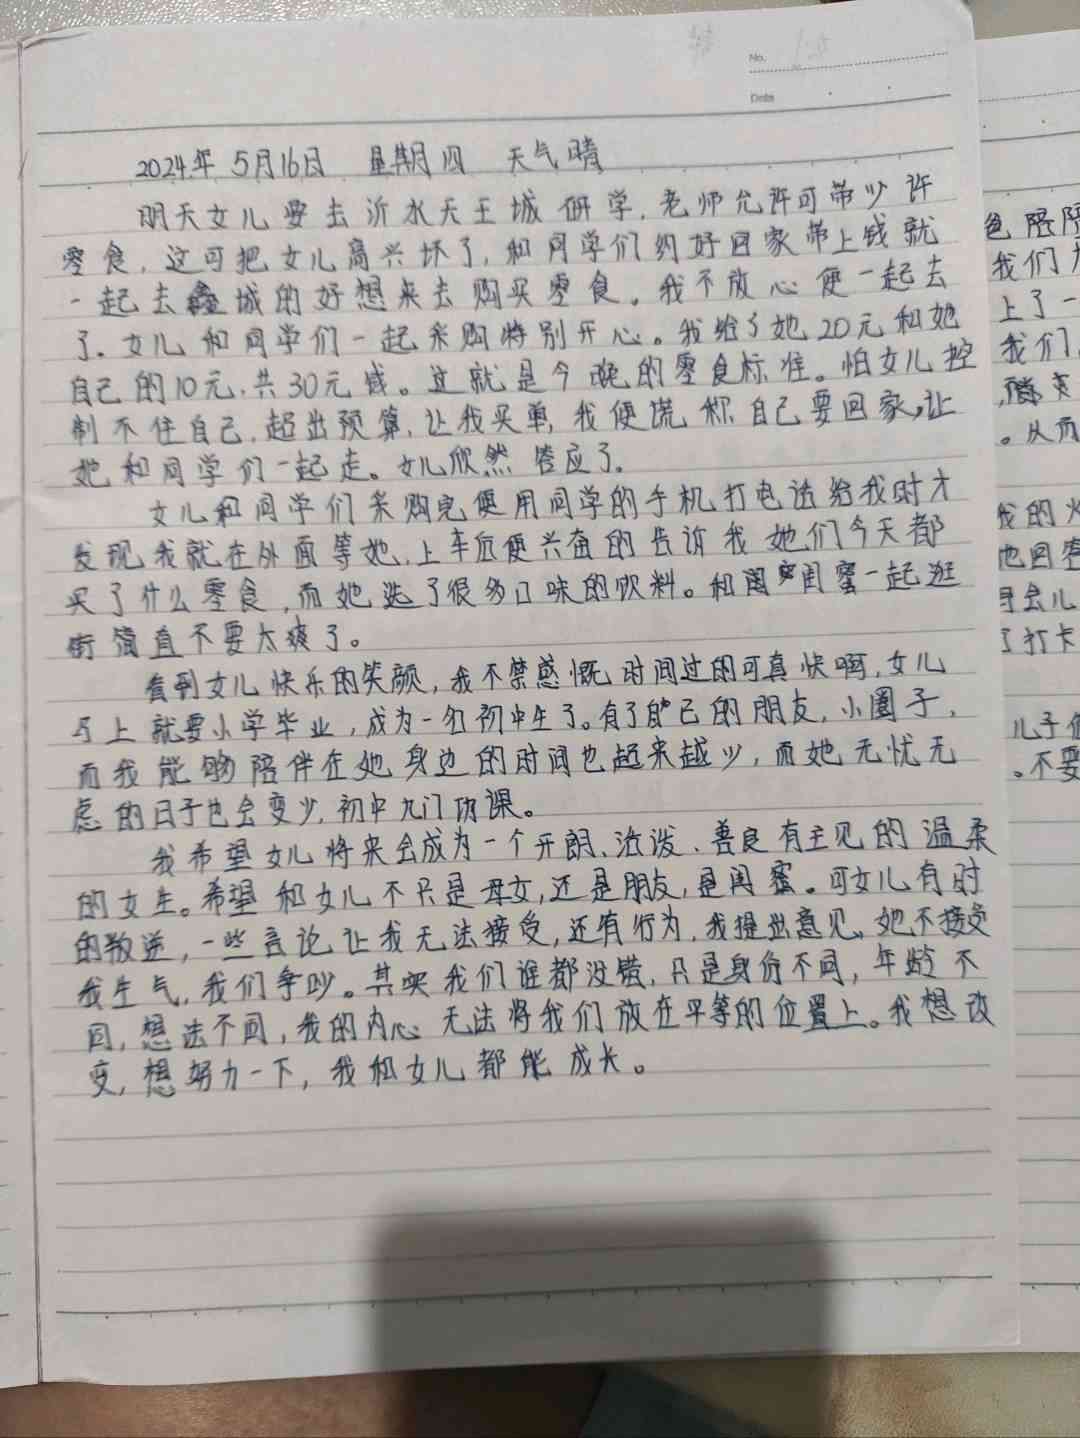 No.
Date
2024年 5月16日 星期四 天气晴
明天女儿要去沂水天王城研学,老师允许可带少许
零食,这可把女儿高兴坏了,和同学们约好回家带上钱就
一起去鑫城的好想来去购买零食。我不放心便一起去
了。女儿和同学们一起采购特别开心。我给了她20元和她
自己的10元,共30元钱。这就是今晚的零食标准。怕女儿控
制不住自己,超出预算,让我买单,我便谎称自己要回家,让
她和同学们一起走。女儿欣然答应了。
女儿和同学们采购完便用同学的手机打电话给我时才
发现我就在外面等她,上车后便兴奋的告诉我她们今天都
买了什么零食,而她选了很多口味的饮料。和闺闺蜜一起逛
街简直不要太爽了。
看到女儿快乐的笑颜,我不禁感慨时间过的可真快啊,女儿
马上就要小学毕业,成为一名初中生了。有了自己的朋友,小圈子,
而我能够陪伴在她身边的时间也越来越少,而她无忧无
虑的日子也会变少,初中九门功课。
我希望女儿将来会成为一个开朗、活泼、善良有主见的温柔
的女生。希望和女儿不只是母女,还是朋友,是闺蜜。可女儿有时
的叛逆,一些言论让我无法接受,还有行为,我提出意见,她不接受
我生气,我们争吵。其实我们谁都没错,只是身份不同,年龄不
同,想法不同,我的内心无法将我们放在平等的位置上。我想改
变,想努力一下,我和女儿都能成长。
我们
上了一
我们
。从而
我的火
也回
了打卡
儿子
。不要